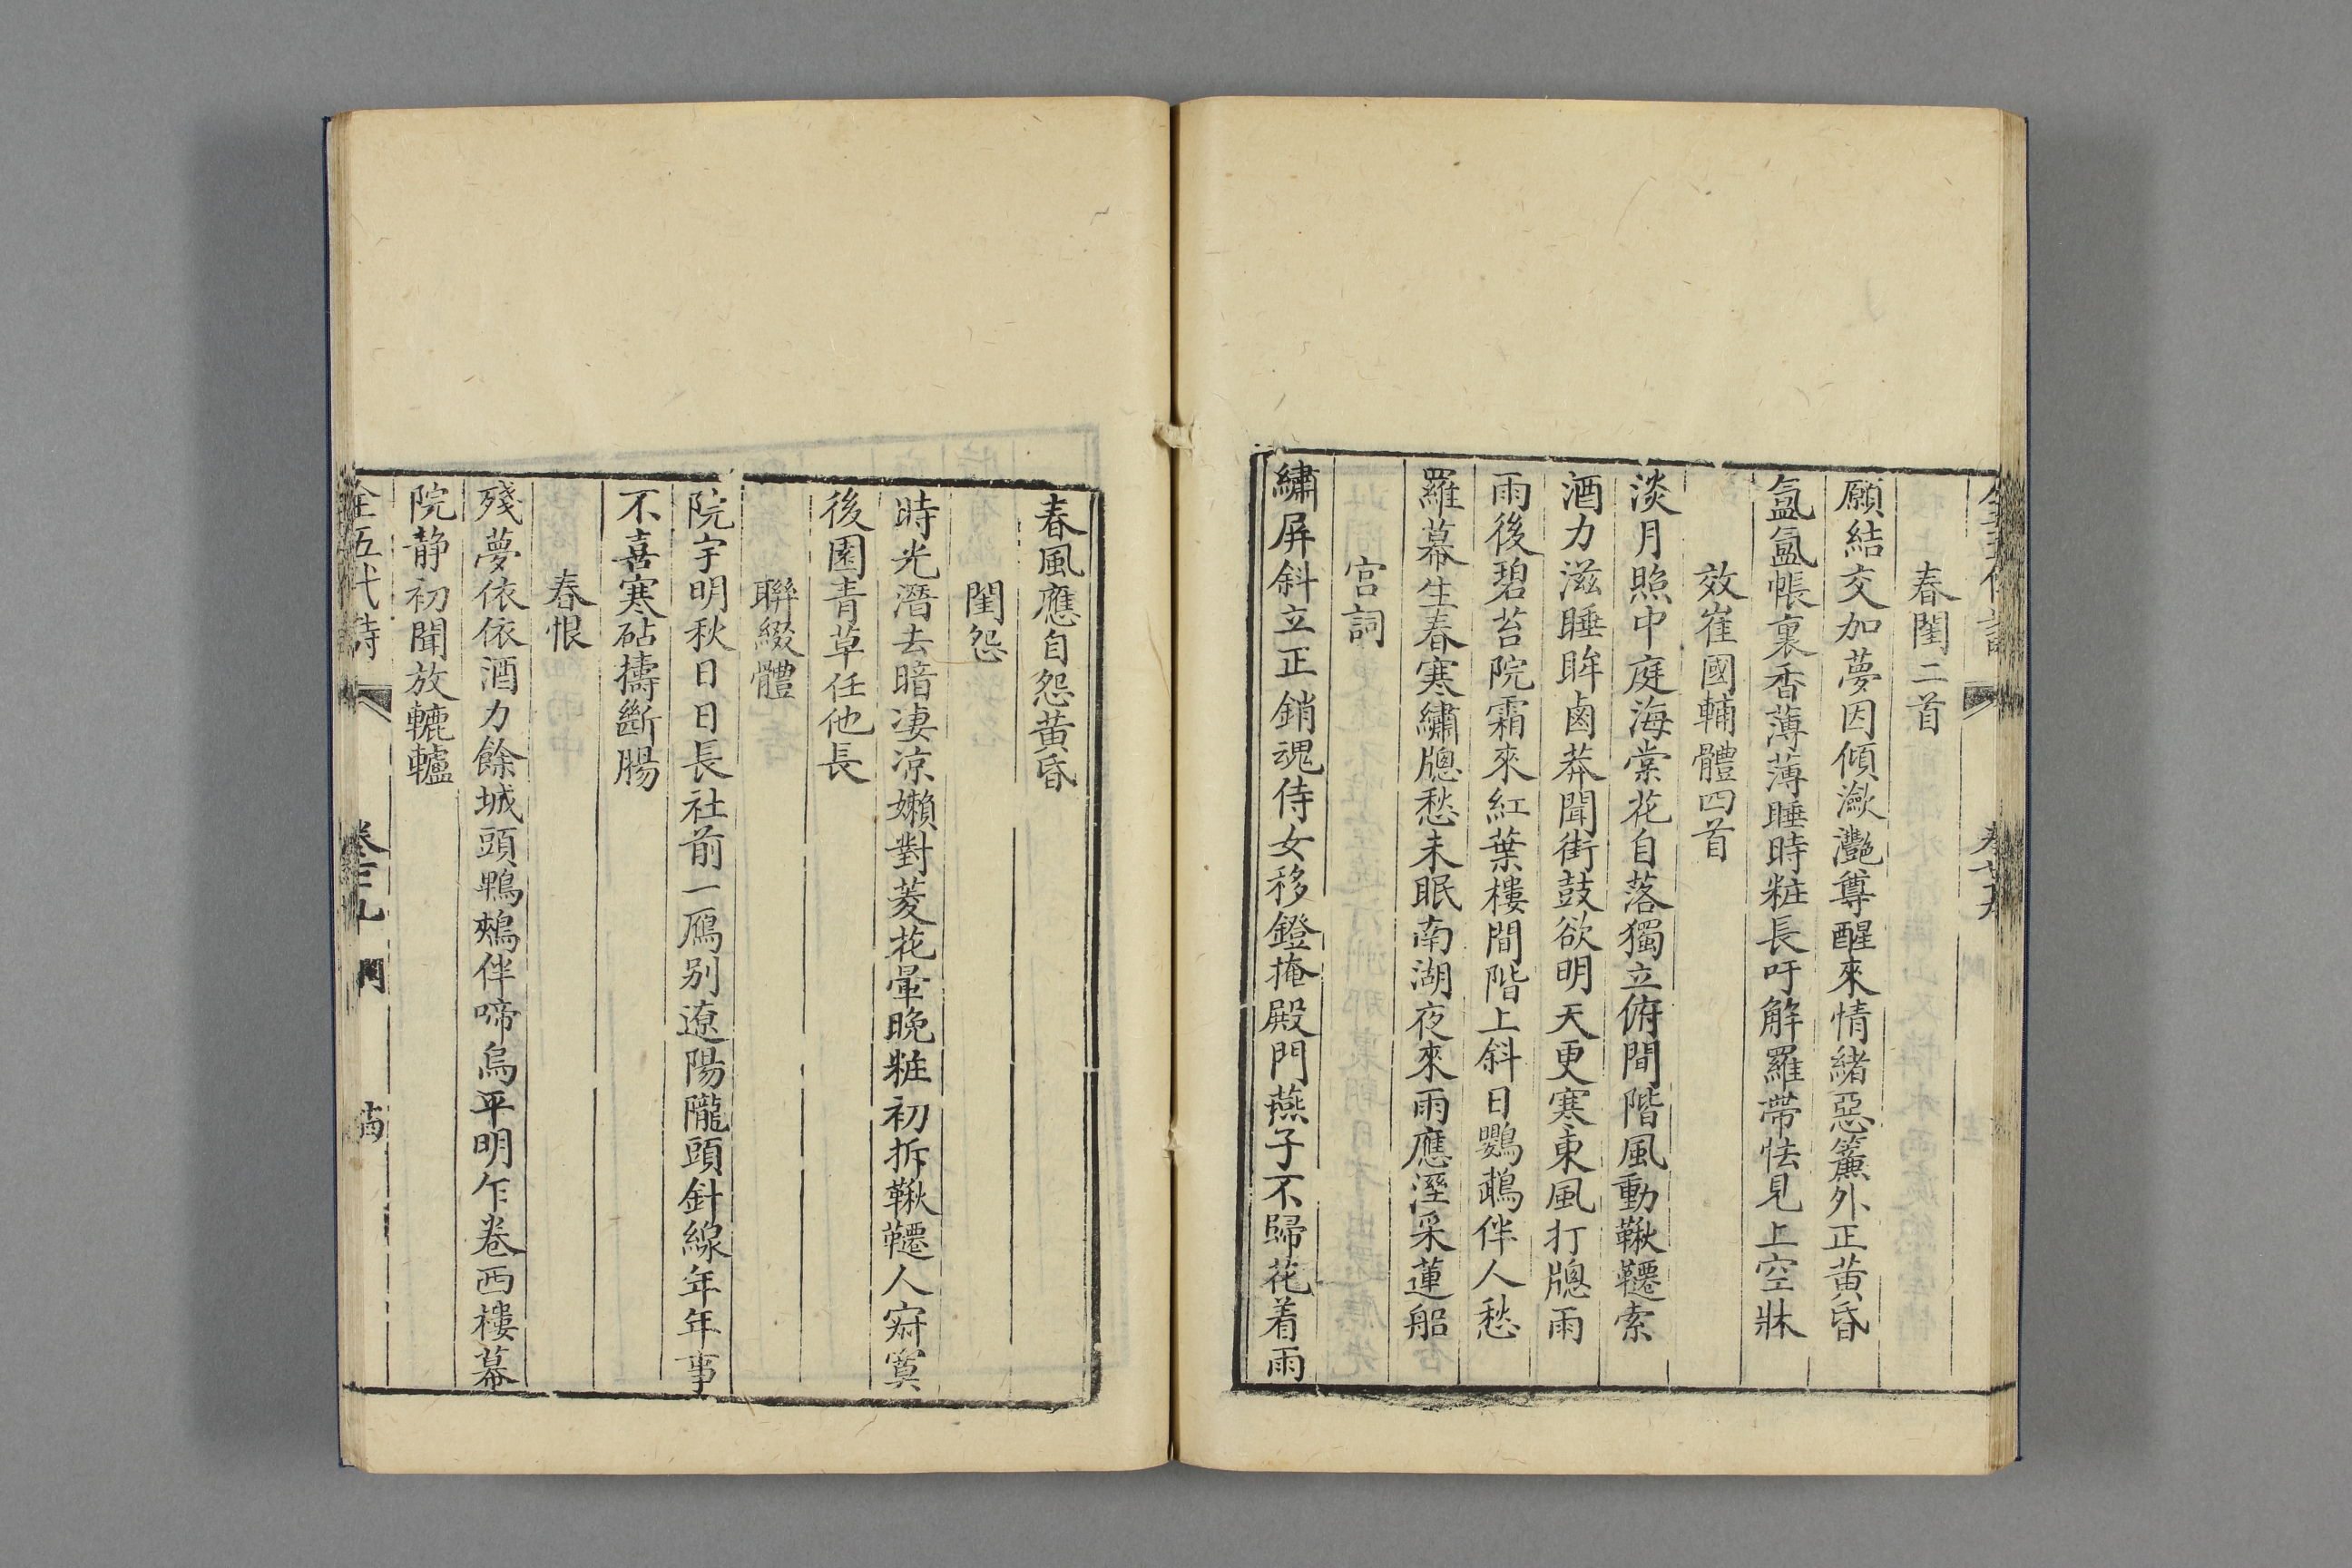 春閨二首
願結交加夢因傾瀲灩尊醒來情緒惡簾外正黃昏
氳氳帳裏香薄薄睡時粧長吁解羅帶怯見上空牀
效崔國輔體四首
淡月照中庭海棠花自落獨立俯閒階風動鞦韆索
酒力滋睡眸鹵莽聞街鼓欲明天更寒東風打牕雨
雨後碧苔院霜來紅葉樓閒階上斜日鸚鵡伴人愁
羅幕生春寒繡牕愁未眠南湖夜來雨應溼采蓮船
宮詞
繡屏斜立正銷魂侍女移鐙掩殿門燕子不歸花着雨
春風應自怨黃昏
閨怨
時光潛去暗凄凉嬾對菱花暈晚粧初拆鞦韆人寂寞
後園青草任他長
聯綴體
院宇明秋日日長社前一鴈别遼陽隴頭針線年年事
不喜寒砧擣斷腸
春恨
殘夢依依酒力餘城頭鴨鵊伴啼烏平明乍卷西樓幕
院静初聞放轆轤
全五代詩